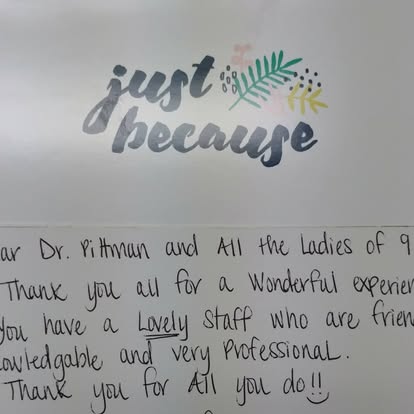 just
because
ar Dr. Pittman and All the Ladies of 9
Thank you all for a Wonderful experien
You have a Lovely Staff who are frien
owledgable and very Professional.
Thank you for All you do!!